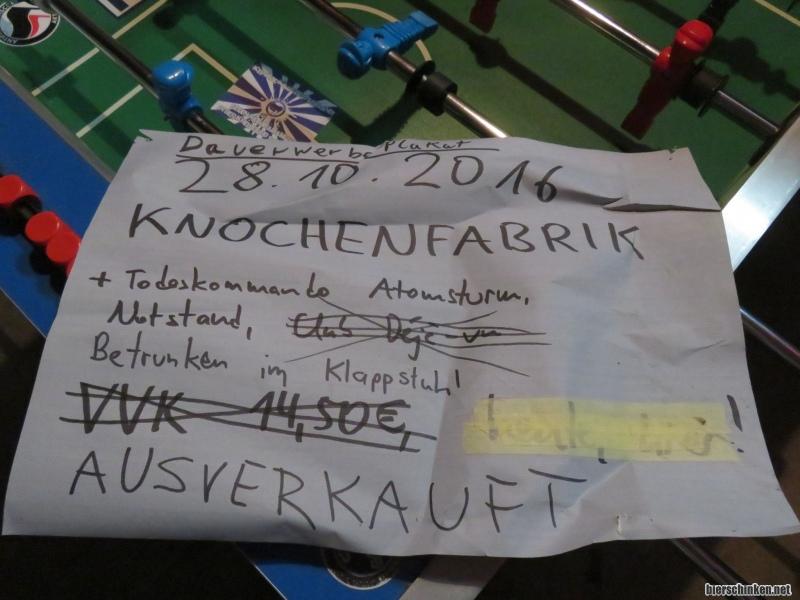 Dauerwerbeplakat
28.10.2016
KNOCHENFABRIK
+ Todeskommando Atomsturm,
Notstand, Club Déjà-vu
Betrunken im Klappstuhl
VVK 14,50€,
AUSVERKAUFT
bierschinken.net